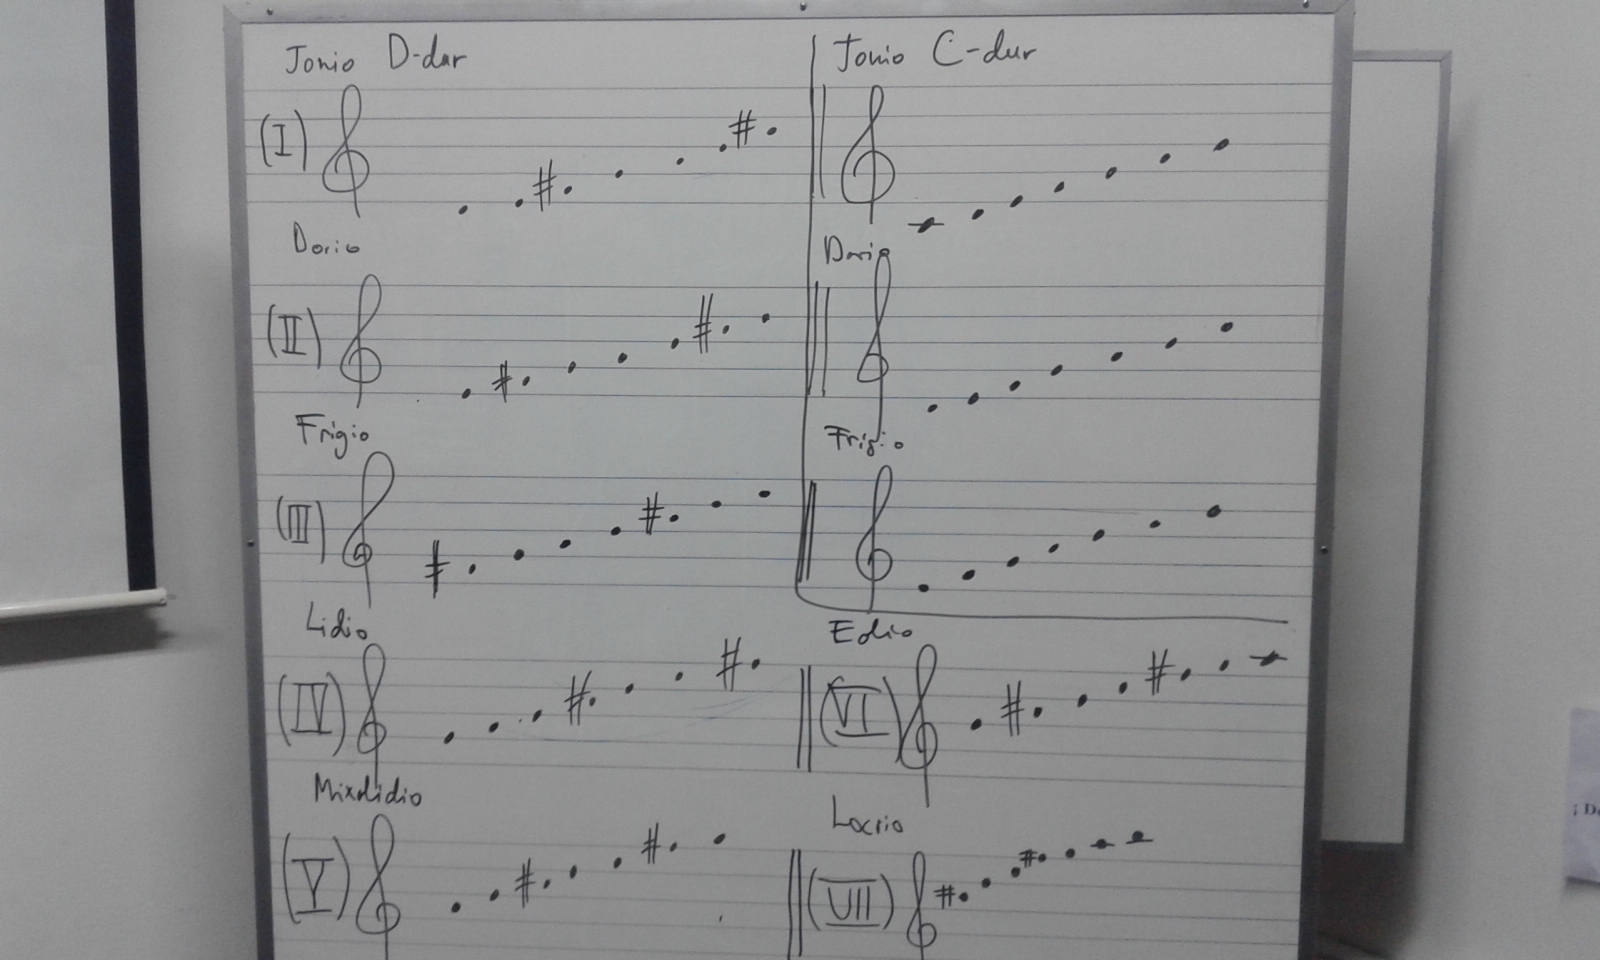 Jonio D-dur
(I) # #
Dorio
(II) # #
Frigio
(III) # #
Lidio
(IV) # #
Mixolidio
(V) # #
Jonio C-dur
Dorio
Frigio
Eolio
(VI) # #
Locrio
(VII) # #